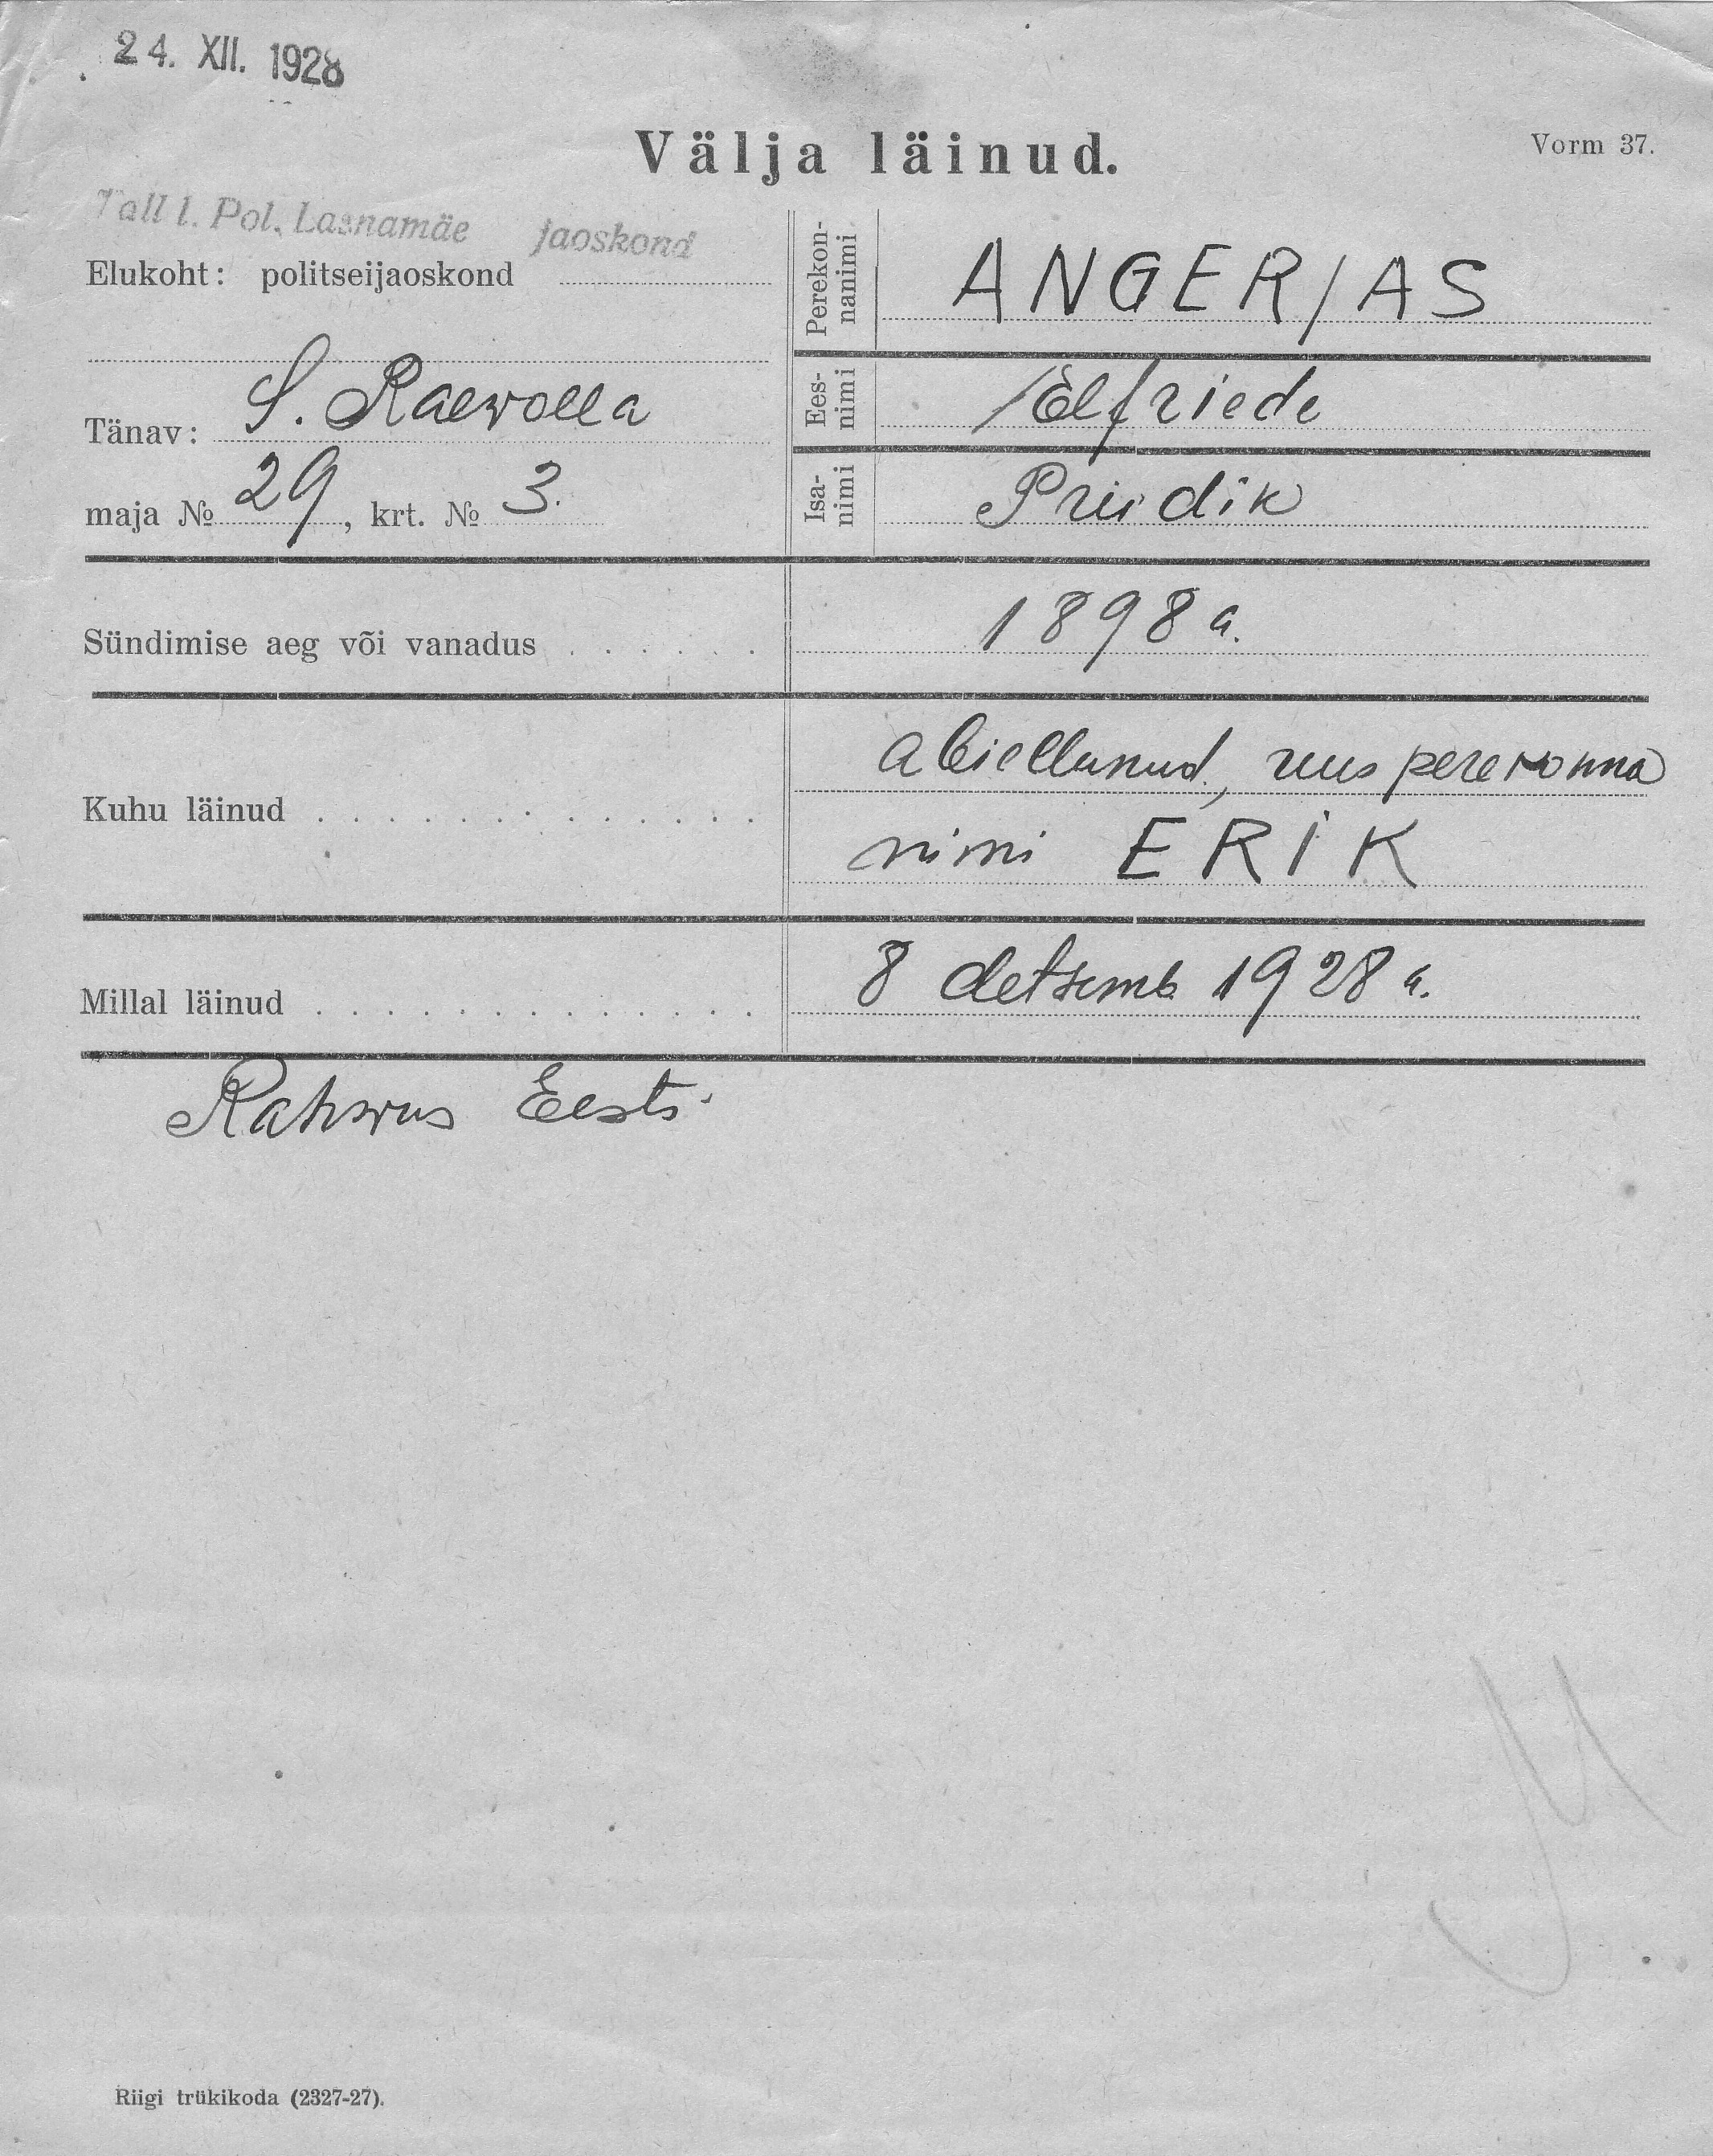 24. XII. 1928
Välja läinud.
Vorm 37.
Tall l. Pol. Lasnamäe jaoskond
Elukoht: politseijaoskond
Tänav: S. Raewolla
maja № 29, krt. № 3.
Perekon-
nanimi
ANGERJAS
Ees-
nimi
Elfriede
Isa-
nimi
Priidik
Sündimise aeg või vanadus
1898 a.
Kuhu läinud
abiellunud, uus perekonna
nimi ERIK
Millal läinud
8 detsemb. 1928 a.
Rahwus Eesti
Riigi trükikoda (2327-27).